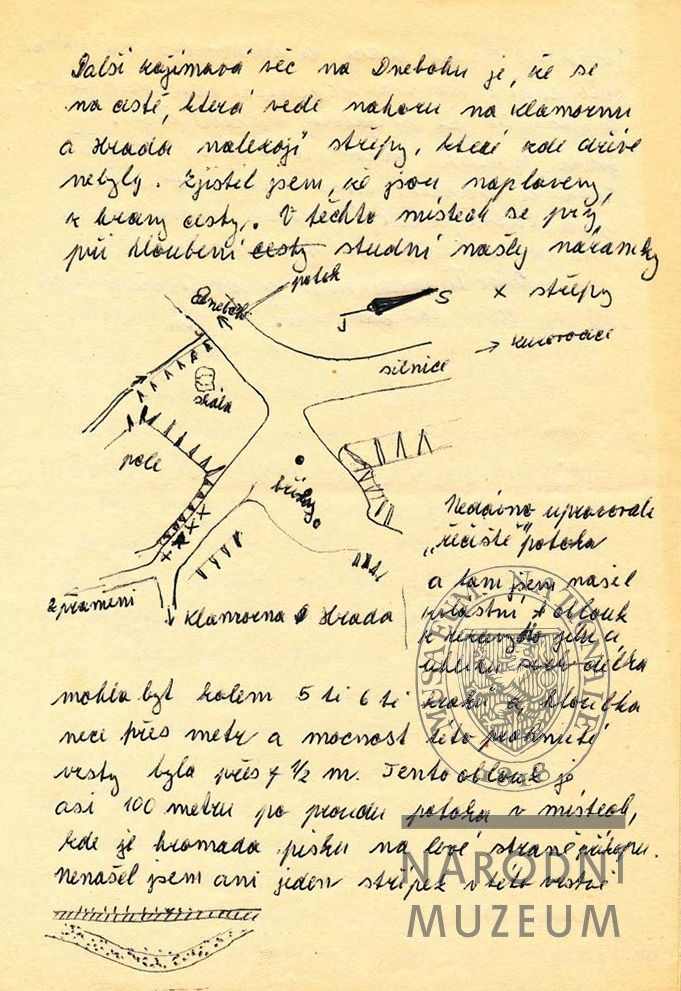 Další zajímavá věc na Dnebohu je, že se
na cestě, která vede nahoru na Klamornu
a Hrada nalezají střepy, které zde dříve
nebyly. Zjistil jsem, že jsou naplaveny
z hrany cesty. V těchto místech se prý
při hloubení cesty studní našly náramky
potok
Dneboh
J
S
x střepy
silnice
skála
pole
břízy
Nedávno upravovali
„řečiště" potoka
a tam jsem našel
zvláštní oblouk
z pramenů
Klamorna
Hrada
délka
mohla byt kolem 5 ti 6 ti kroků a hloubka
nece přes metr a mocnost této prohnuté
vrsty byla přes 1/2 m. Tento oblouk je
asi 100 metru po proudu potoka v místech,
kde je hromada písku na levé straně příkopu.
Nenašel jsem ani jeden střípek v této vrstvě
MUSAEUM NATIONALE
1818
NÁRODNÍ
MUZEUM